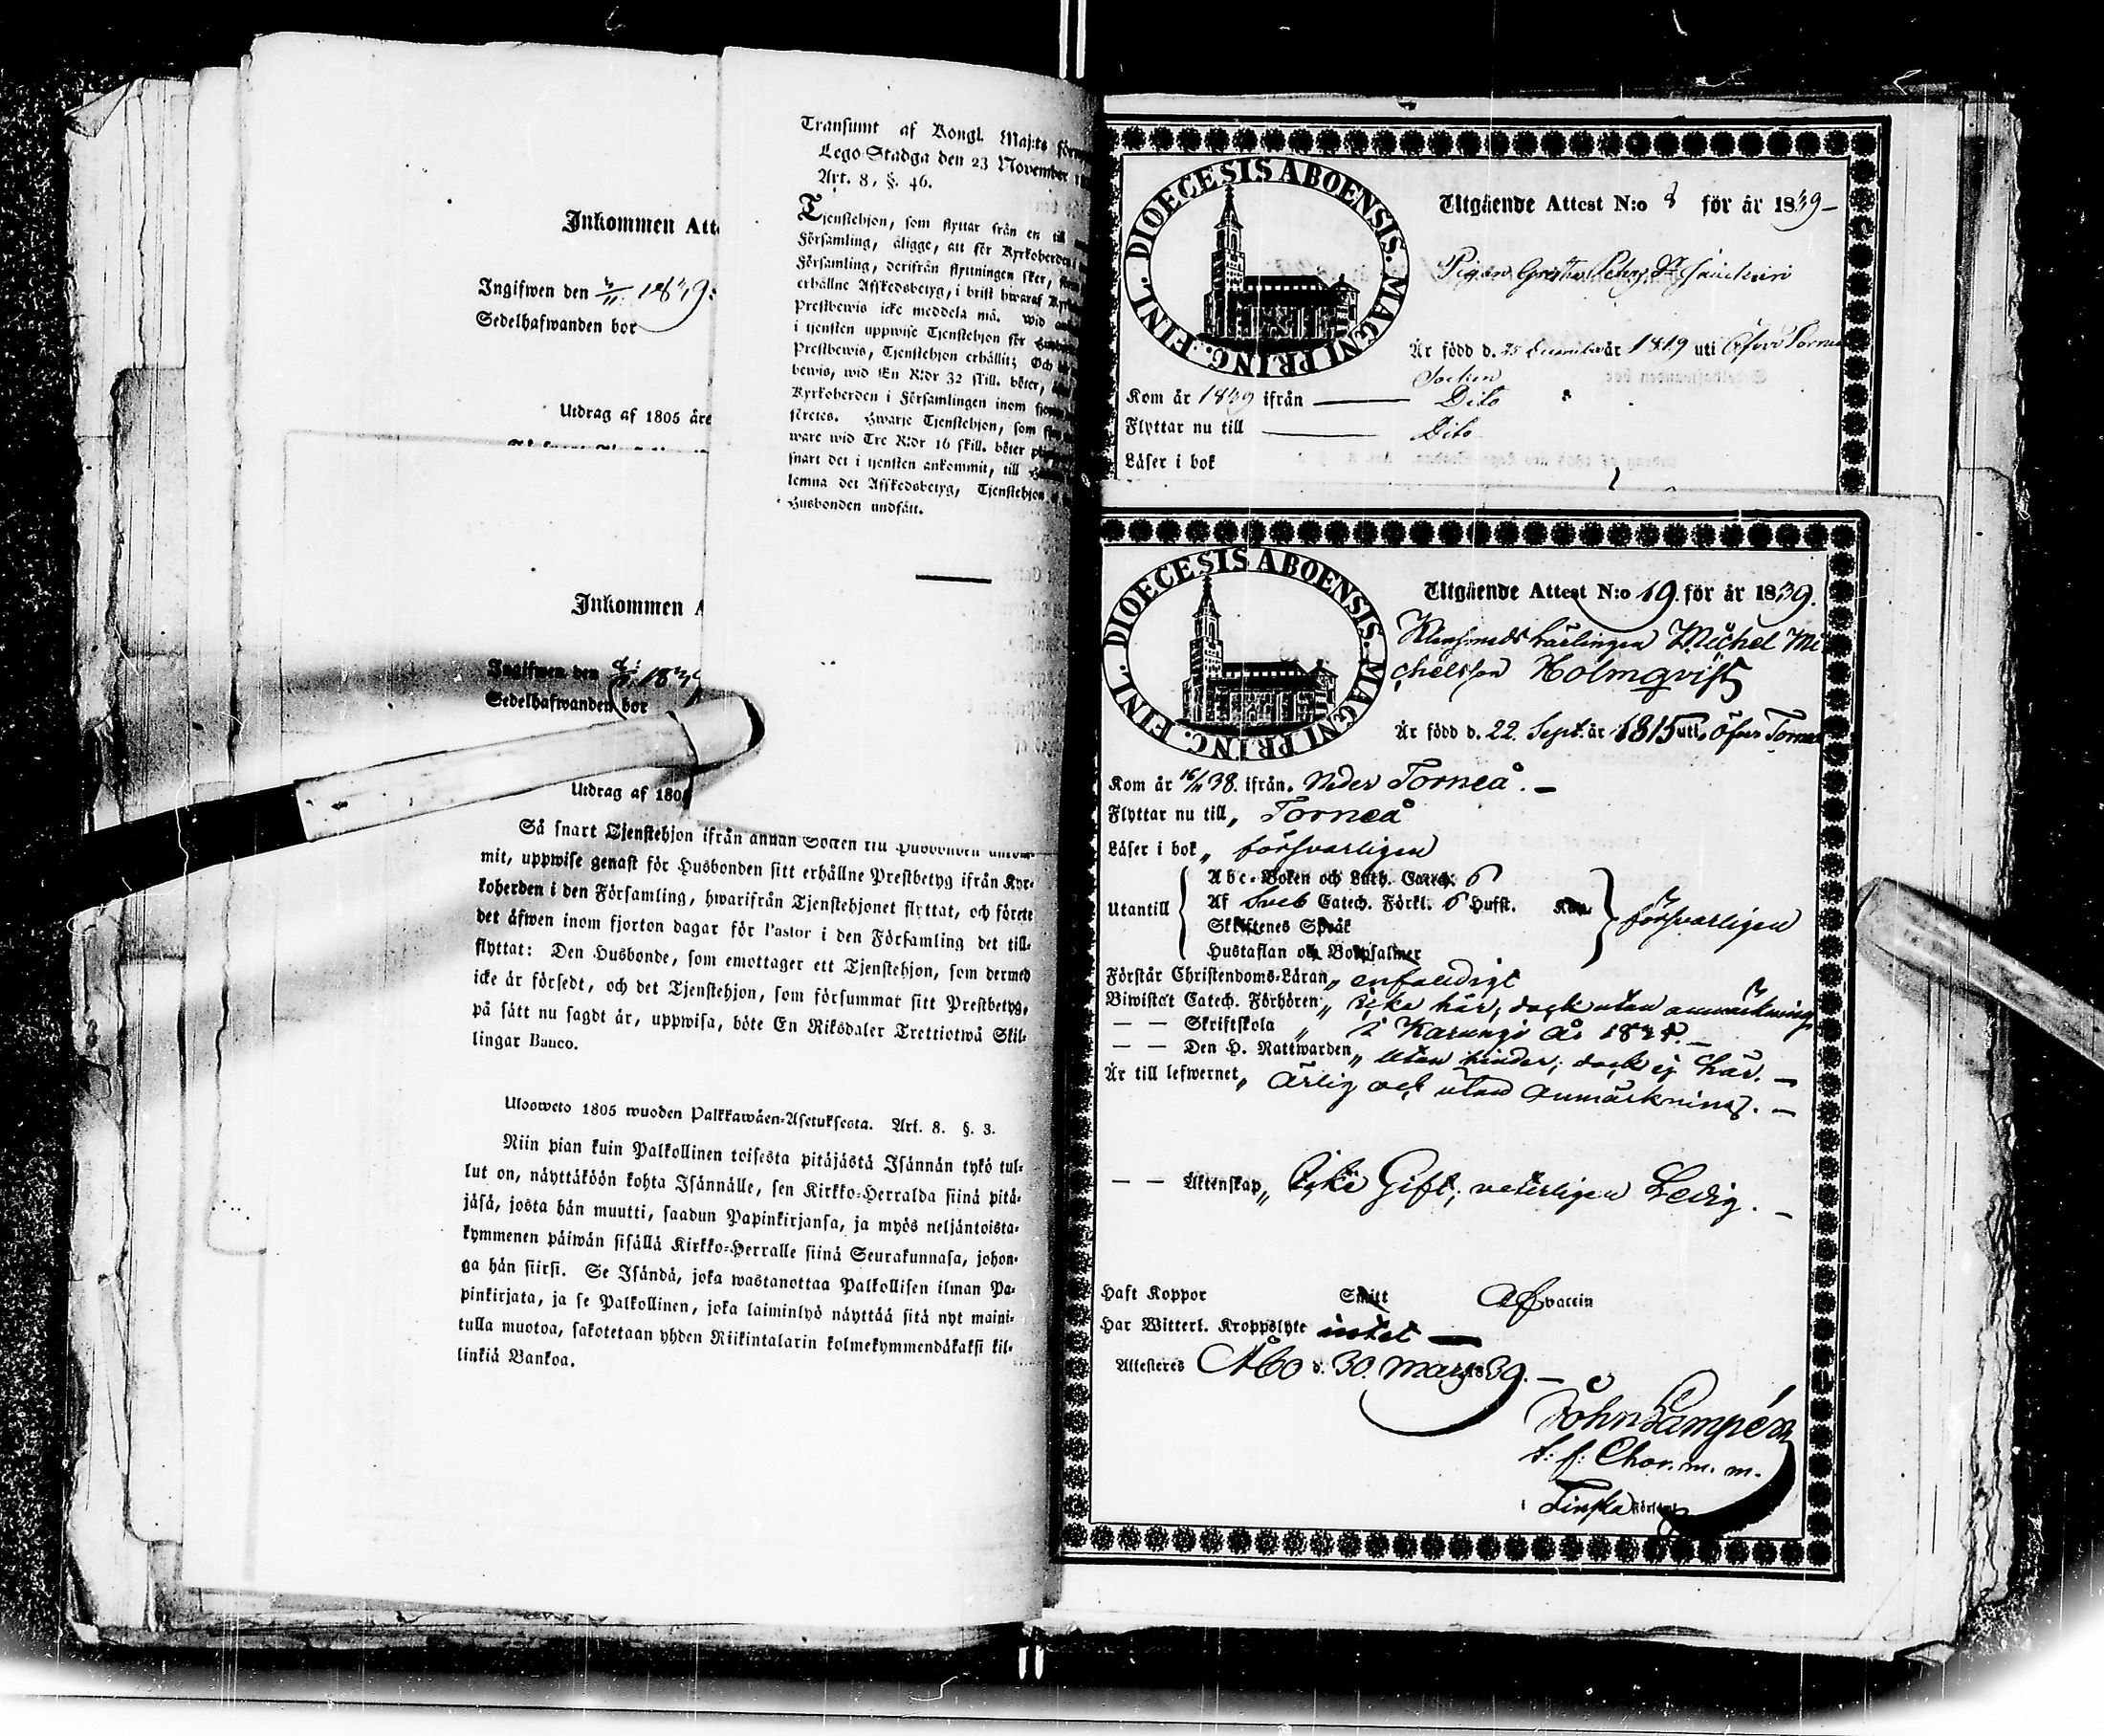 Inkommen
Ingifwen den 1839.
Sedelhafwanden bor
Utdrag af 1805 åre
Transumt af Kongl. Maj:ts
Lego-Stadga den 23 November
Art. 8, §. 46.
Tjenstehjon, som flyttar från en till
Församling, åligge, att för Kyrkoherden
Församling, derifrån flyttningen sker,
erhållne Afskedsbetyg, i brist hwaraf
Prestbewis icke meddela må. Wid
i tjensten uppwise Tjenstehjon för
Prestbewis, Tjenstehjon erhållit; Och
bewis, wid En R:dr 32 skill. böter,
Kyrkoherden i Församlingen inom
företes. Hwarje Tjenstehjon, som
ware wid Tre R:dr 16 skill. böter
snart det i tjensten ankommit, till
lemna det Afskedsbetyg, Tjenstehjon
Husbonden undfått.
Inkommen
Ingifwen den
Sedelhafwanden bor
Utdrag af 180
Så snart Tjenstehjon ifrån annan Socken till Husbonden
mit, uppwise genast för Husbonden sitt erhållne Prestbetyg ifrån Kyr-
koherden i den Församling, hwarifrån Tjenstehjonet flyttat, och förete
det äfwen inom fjorton dagar för Pastor i den Församling det till-
flyttat: Den Husbonde, som emottager ett Tjenstehjon, som dermed
icke är försedt, och det Tjenstehjon, som försummar sitt Prestbetyg,
på sätt nu sagdt är, uppwisa, böte En Riksdaler Trettiotwå Skil-
lingar Banco.
Ulosweto 1805 wuoden Palkkawäen-Asetuksesta. Art. 8. §. 3.
Niin pian kuin Palkollinen toisesta pitäjästä Isännän tykö tul-
lut on, näyttäköön kohta Isännälle, sen Kirkko-Herralda siinä pitä-
jäsä, josta hän muutti, saadun Papinkirjansa, ja myös neljäntoista-
kymmenen päiwän sisällä Kirkko-Herralle siinä Seurakunnasa, johon-
ga hän siirsi. Se Isändä, joka wastanottaa Palkollisen ilman Pa-
pinkirjata, ja se Palkollinen, joka laiminlyö näyttää sitä nyt maini-
tulla muotoa, sakotetaan yhden Riikintalarin kolmekymmendäkaksi kil-
linkiä Bankoa.
DIOECESIS ABOENSIS. MAGNI PRINC. FINL.
Utgående Attest N:o 8 för år 1839
Pigan Greta Peters Dr
Är född d. 25 December år 1819 uti Öfver Torneå
Socken
Kom år 1839 ifrån Dito
Flyttar nu till Dito
Läser i bok
DIOECESIS ABOENSIS. MAGNI PRINC. FINL.
Utgående Attest N:o 19. för år 1839.
Klensmeds Lärlingen Michel Mi
chelsson Holmqvist
Är född d. 22. Sept. år 1815 uti Öfver Torneå
Kom år 16/11 38. ifrån Neder Torneå. —
Flyttar nu till, Torneå
Läser i bok „ försvarligen
Abc-Boken och Luth. Catech.
Utantill Af Sveb Catech. Förkl. Husft. försvarligen
Skriftenes Språk
Hustaflan och Botpsalmer
Förstår Christendoms-Läran „ enfaldigt
Biwistat Catech. Förhören „ icke här, dock utan anmärkning
— — Skriftskola „ i Karungi år
— — Den H. Nattwarden „ utan hinder; dock ej här. —
Är till lefwernet „ ärlig och utan anmärkning. —
— — Äktenskap „ Icke Gift; veterligen Ledig. —
Haft Koppor Smitt Af vaccin
Har Witterl. Kroppslyte intet —
Attesteres Åbo d. 30. Mars 1839. —
John Lampén
t: f: Chor. m. m.
i Finska Förs: